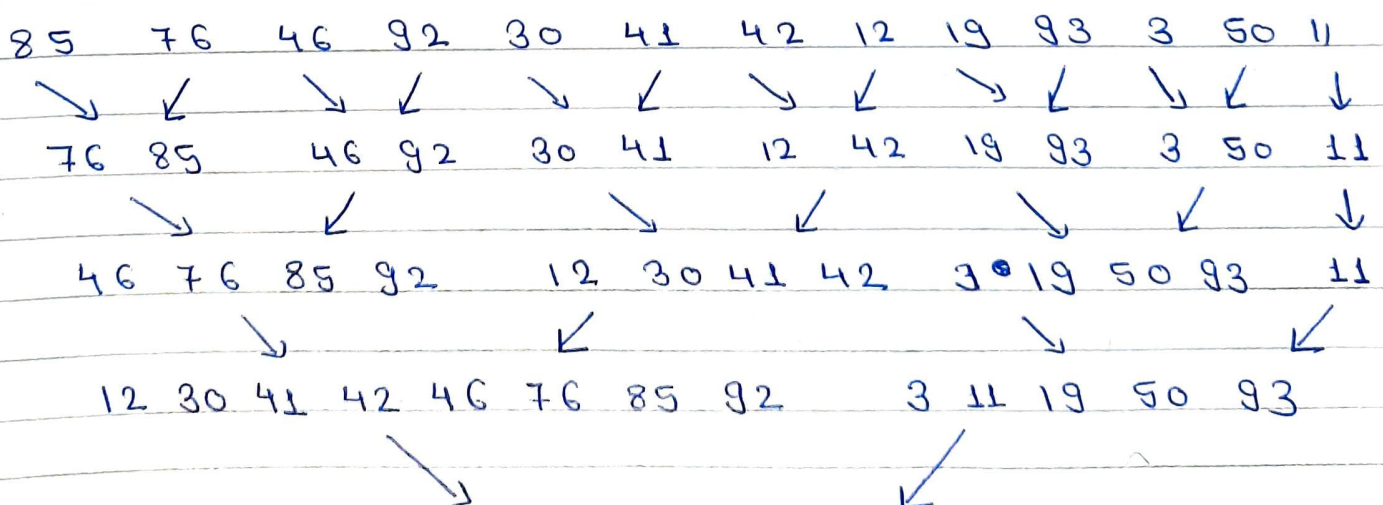 85 76 46 92 30 41 42 12 19 93 3 50 11
76 85 46 92 30 41 12 42 19 93 3 50 11
46 76 85 92 12 30 41 42 3 19 50 93 11
12 30 41 42 46 76 85 92 3 11 19 50 93